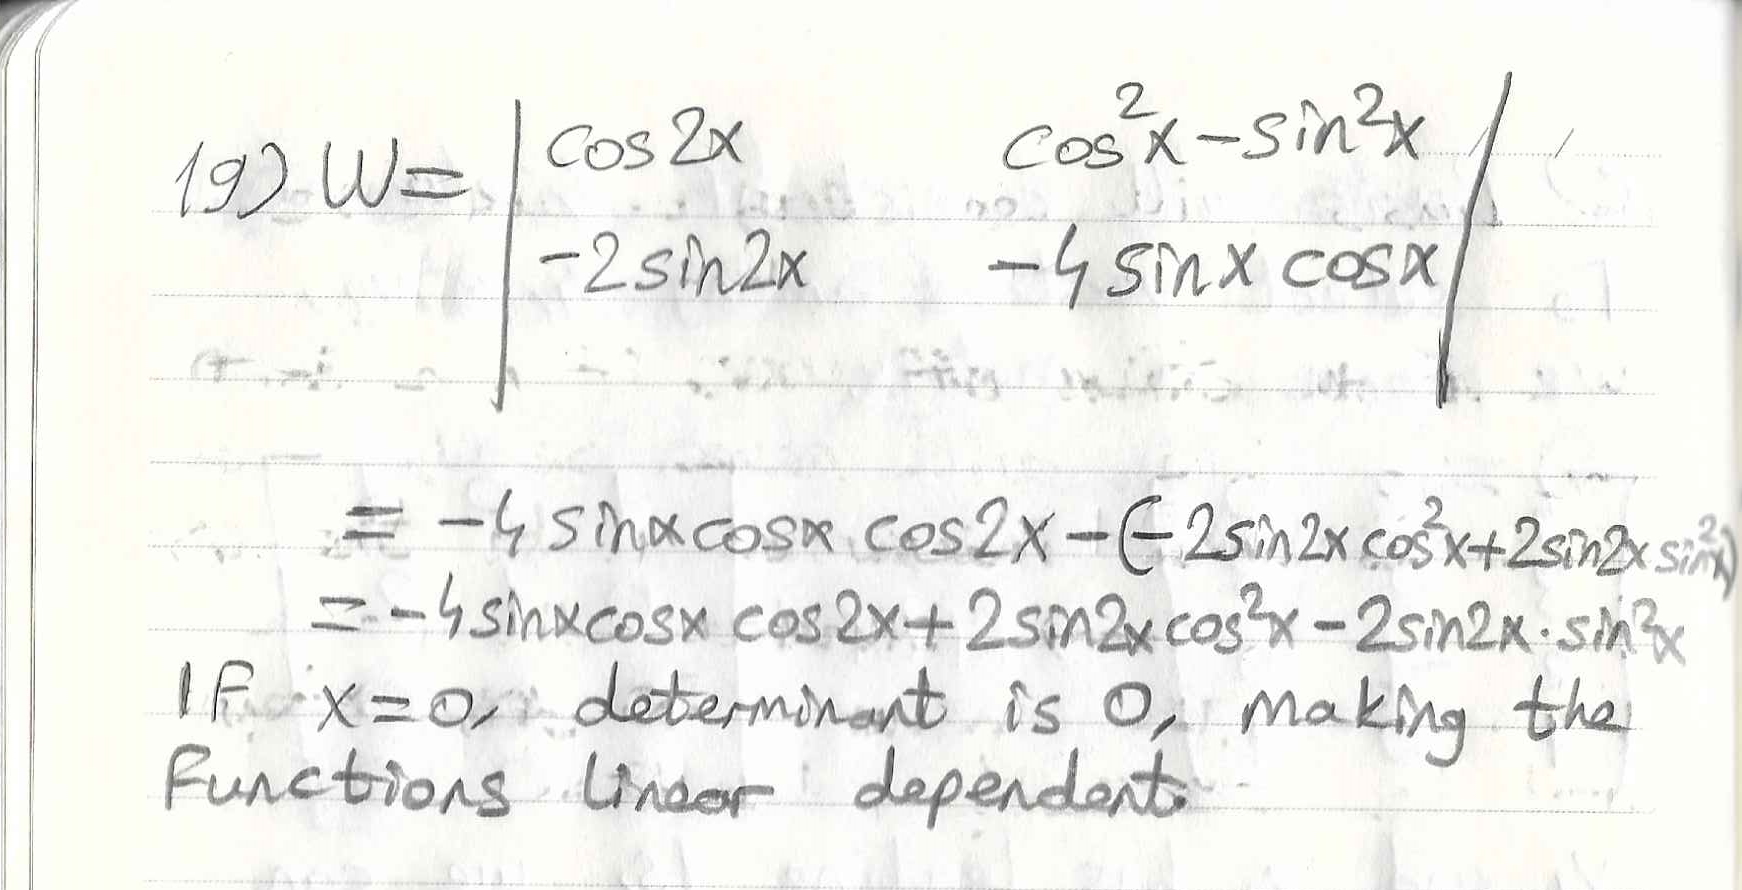 19) W= | cos2x cos²x-sin²x |
-2sin2x -4sinx cosx
= -4sinxcosx cos2x-(-2sin2xcos²x+2sin2x sin²x)
= -4sinxcosx cos2x+2sin2xcos²x-2sin2x·sin²x
If x=0, determinant is 0, making the
functions linear dependent.